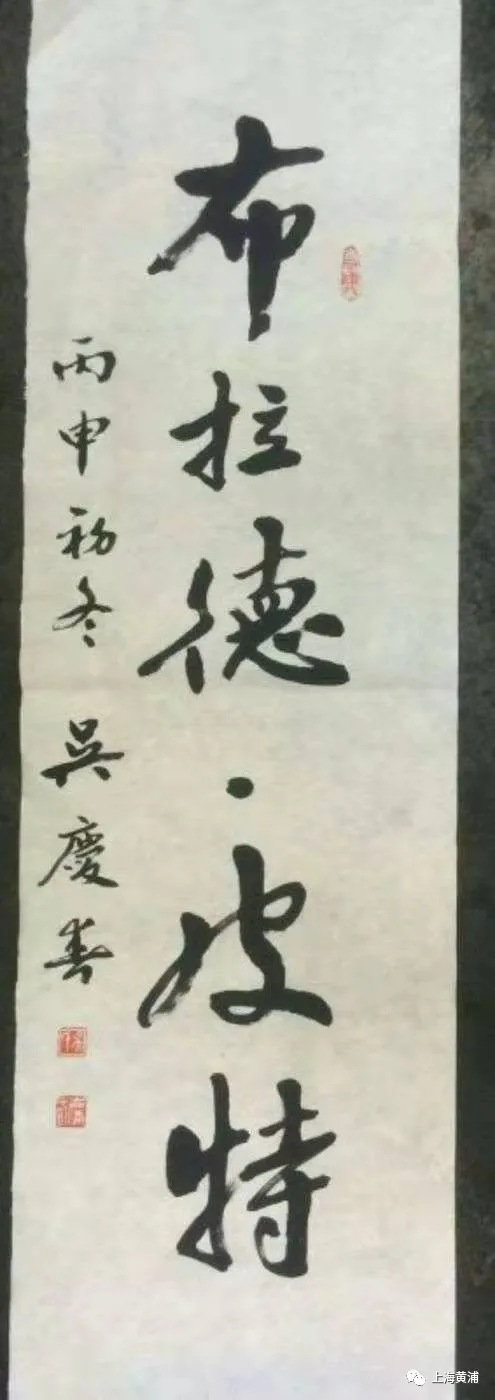 布拉德·皮特
丙申初冬 吴慶春
上海黄浦